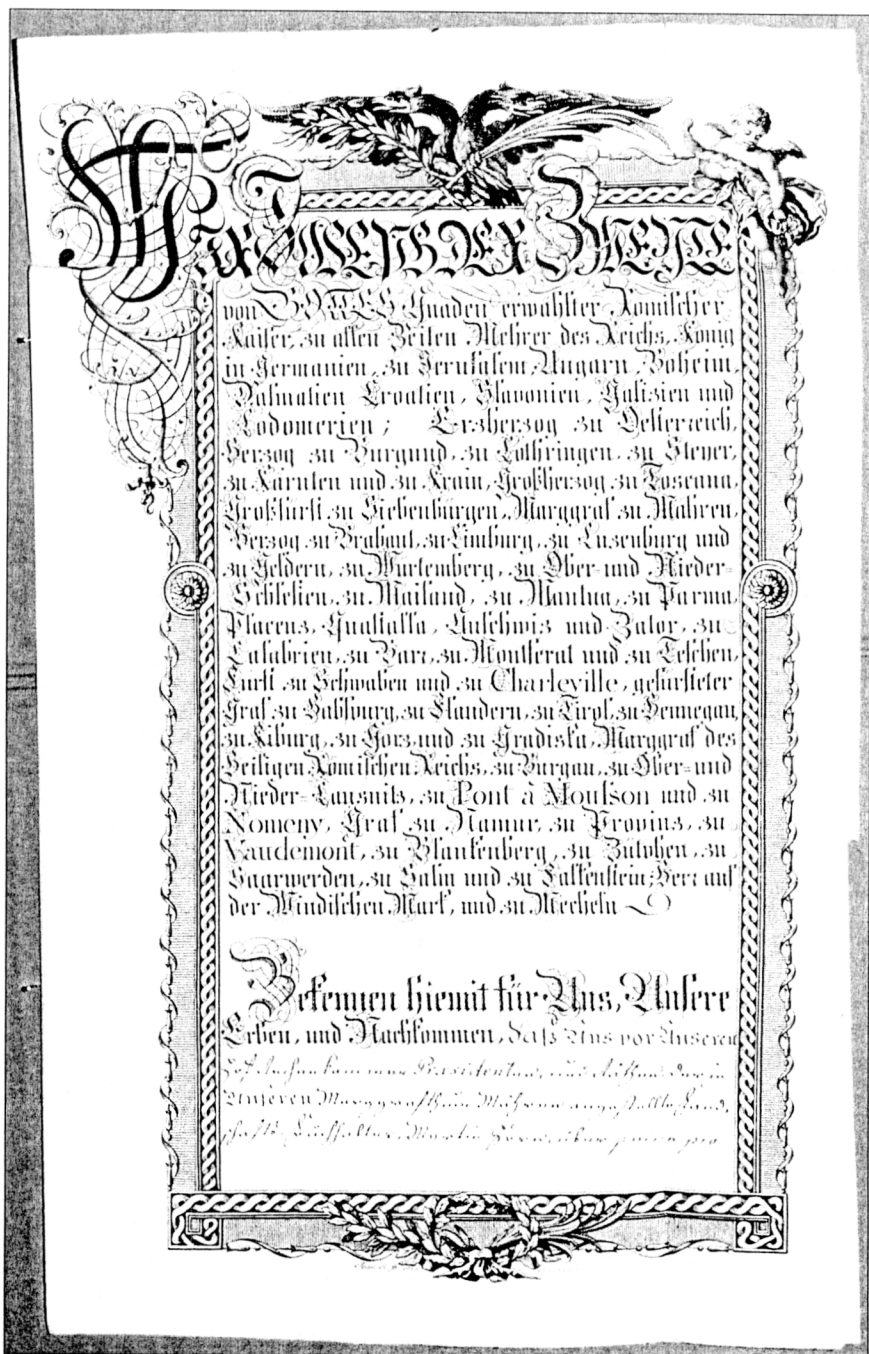 Wir Joseph der Zweyte
von GOTTES Gnaden erwählter Römischer
Kaiser, zu allen Zeiten Mehrer des Reichs, König
in Germanien, zu Jerusalem, Ungarn, Boheim,
Dalmatien Croatien, Slavonien, Galizien und
Lodomerien; Erzherzog zu Oesterreich,
Herzog zu Burgund, zu Lothringen, zu Steyer,
zu Kärnten und zu Krain, Großherzog zu Toscana,
Großfürst zu Siebenbürgen, Marggraf zu Mähren,
Herzog zu Brabant, zu Limburg, zu Luxenburg und
zu Geldern, zu Würtemberg, zu Ober- und Nieder-
Schlesien, zu Mailand, zu Mantua, zu Parma,
Placenz, Quastalla, Auschwiz und Zator, zu
Calabrien, zu Barr, zu Montferat und zu Teschen,
Fürst zu Schwaben und zu Charleville, gefürsteter
Graf zu Habsburg, zu Flandern, zu Tirol, zu Hennegau,
zu Kiburg, zu Görz, und zu Gradiska, Marggraf des
Heiligen Römischen Reichs, zu Burgau, zu Ober- und
Nieder-Lausnitz, zu Pont à Mousson und zu
Nomeny, Graf zu Namur, zu Provinz, zu
Vaudemont, zu Blankenberg, zu Zütphen, zu
Saarwerden, zu Salm und zu Falkenstein; Herr auf
der Windischen Mark, und zu Mecheln
Bekennen hiemit für Uns, Unsere
Erben, und Nachkommen, daß Uns vor Unseren
Hof Rechenkammer Präsidenten, und Räthen der in
Unseren Marggrafthum Mähren angestellte Land-
schafts Buchhalter Martin über seine pro